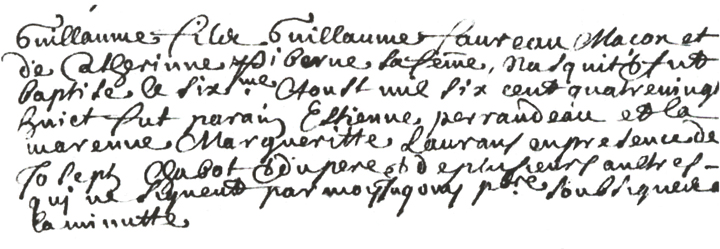 Guillaume fils de Guillaume faureau Macon et
de Catherinne piberne sa feme, nasquit & fut
baptise le six.me Aoust mil six cent quatrevingt
huict fut parain Estienne perrandeau et la
marenne Margueritte Laurans en presence de
Joseph Chabot & du pere & de plusieurs autres
qui ne signent par moy p.bre soubsigne a
la minutte